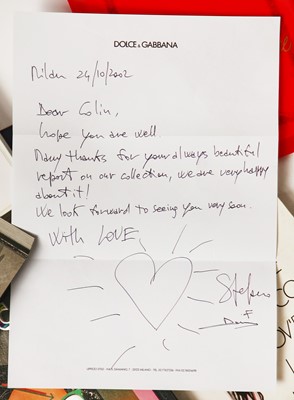 DOLCE & GABBANA
Milan 24/10/2002
Dear Colin,
hope you are well.
Many thanks for your always beautiful
report on our collection, we are very happy
about it!
We look forward to seeing you very soon.
With LOVE
Stefano